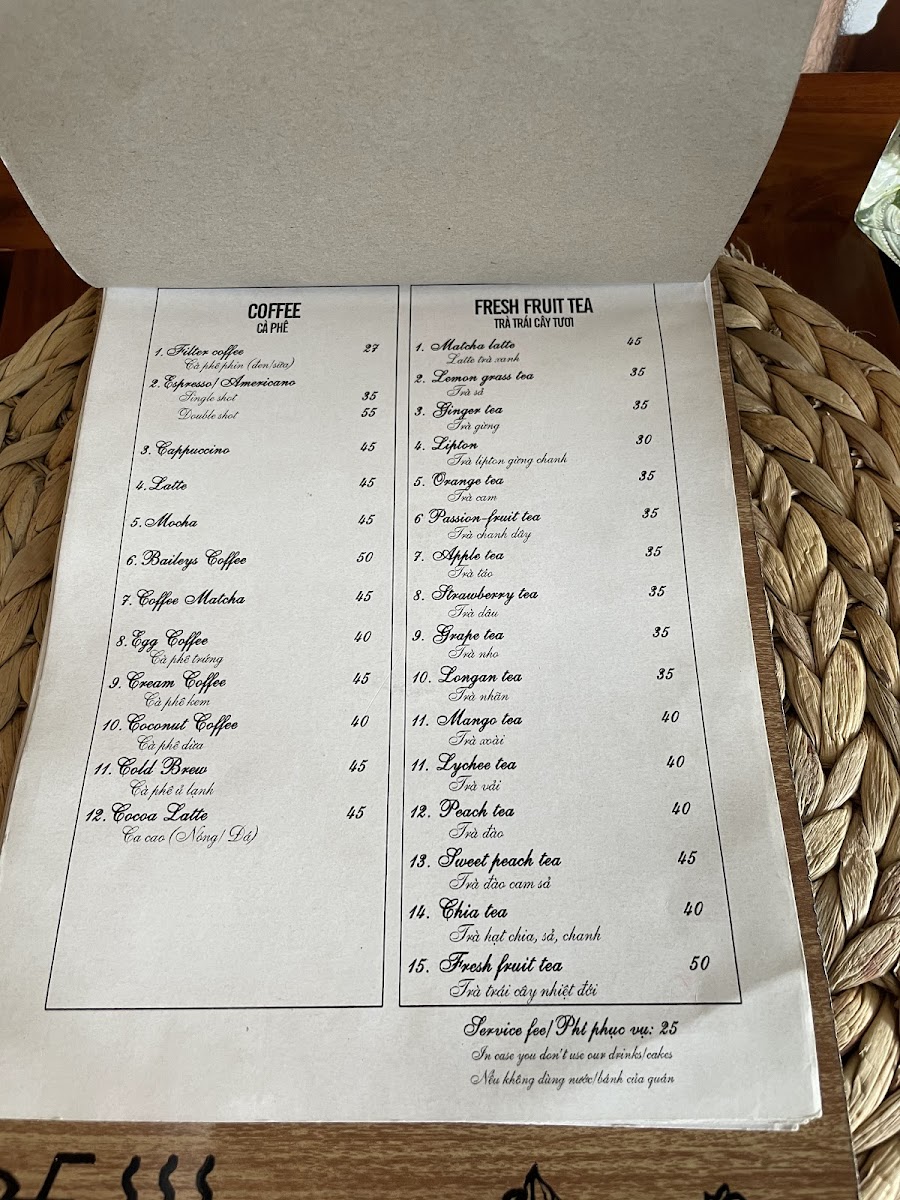 COFFEE
CÀ PHÊ
1. Filter coffee 27
Cà phê phin (đen/sữa)
2. Espresso/Americano
Single shot 35
Double shot 55
3. Cappuccino 45
4. Latte 45
5. Mocha 45
6. Baileys Coffee 50
7. Coffee Matcha 45
8. Egg Coffee 40
Cà phê trứng
9. Cream Coffee 45
Cà phê kem
10. Coconut Coffee 40
Cà phê dừa
11. Cold Brew 45
Cà phê ủ lạnh
12. Cocoa Latte 45
Ca cao (Nóng/ Đá)
FRESH FRUIT TEA
TRÀ TRÁI CÂY TƯƠI
1. Matcha latte 45
Latte trà xanh
2. Lemon grass tea 35
Trà sả
3. Ginger tea 35
Trà gừng
4. Lipton 30
Trà lipton gừng chanh
5. Orange tea 35
Trà cam
6 Passion-fruit tea 35
Trà chanh dây
7. Apple tea 35
Trà táo
8. Strawberry tea 35
Trà dâu
9. Grape tea 35
Trà nho
10. Longan tea 35
Trà nhãn
11. Mango tea 40
Trà xoài
11. Lychee tea 40
Trà vải
12. Peach tea 40
Trà đào
13. Sweet peach tea 45
Trà đào cam sả
14. Chia tea 40
Trà hạt chia, sả, chanh
15. Fresh fruit tea 50
Trà trái cây nhiệt đới
Service fee/Phí phục vụ: 25
In case you don't use our drinks/cakes
Nếu không dùng nước/bánh của quán